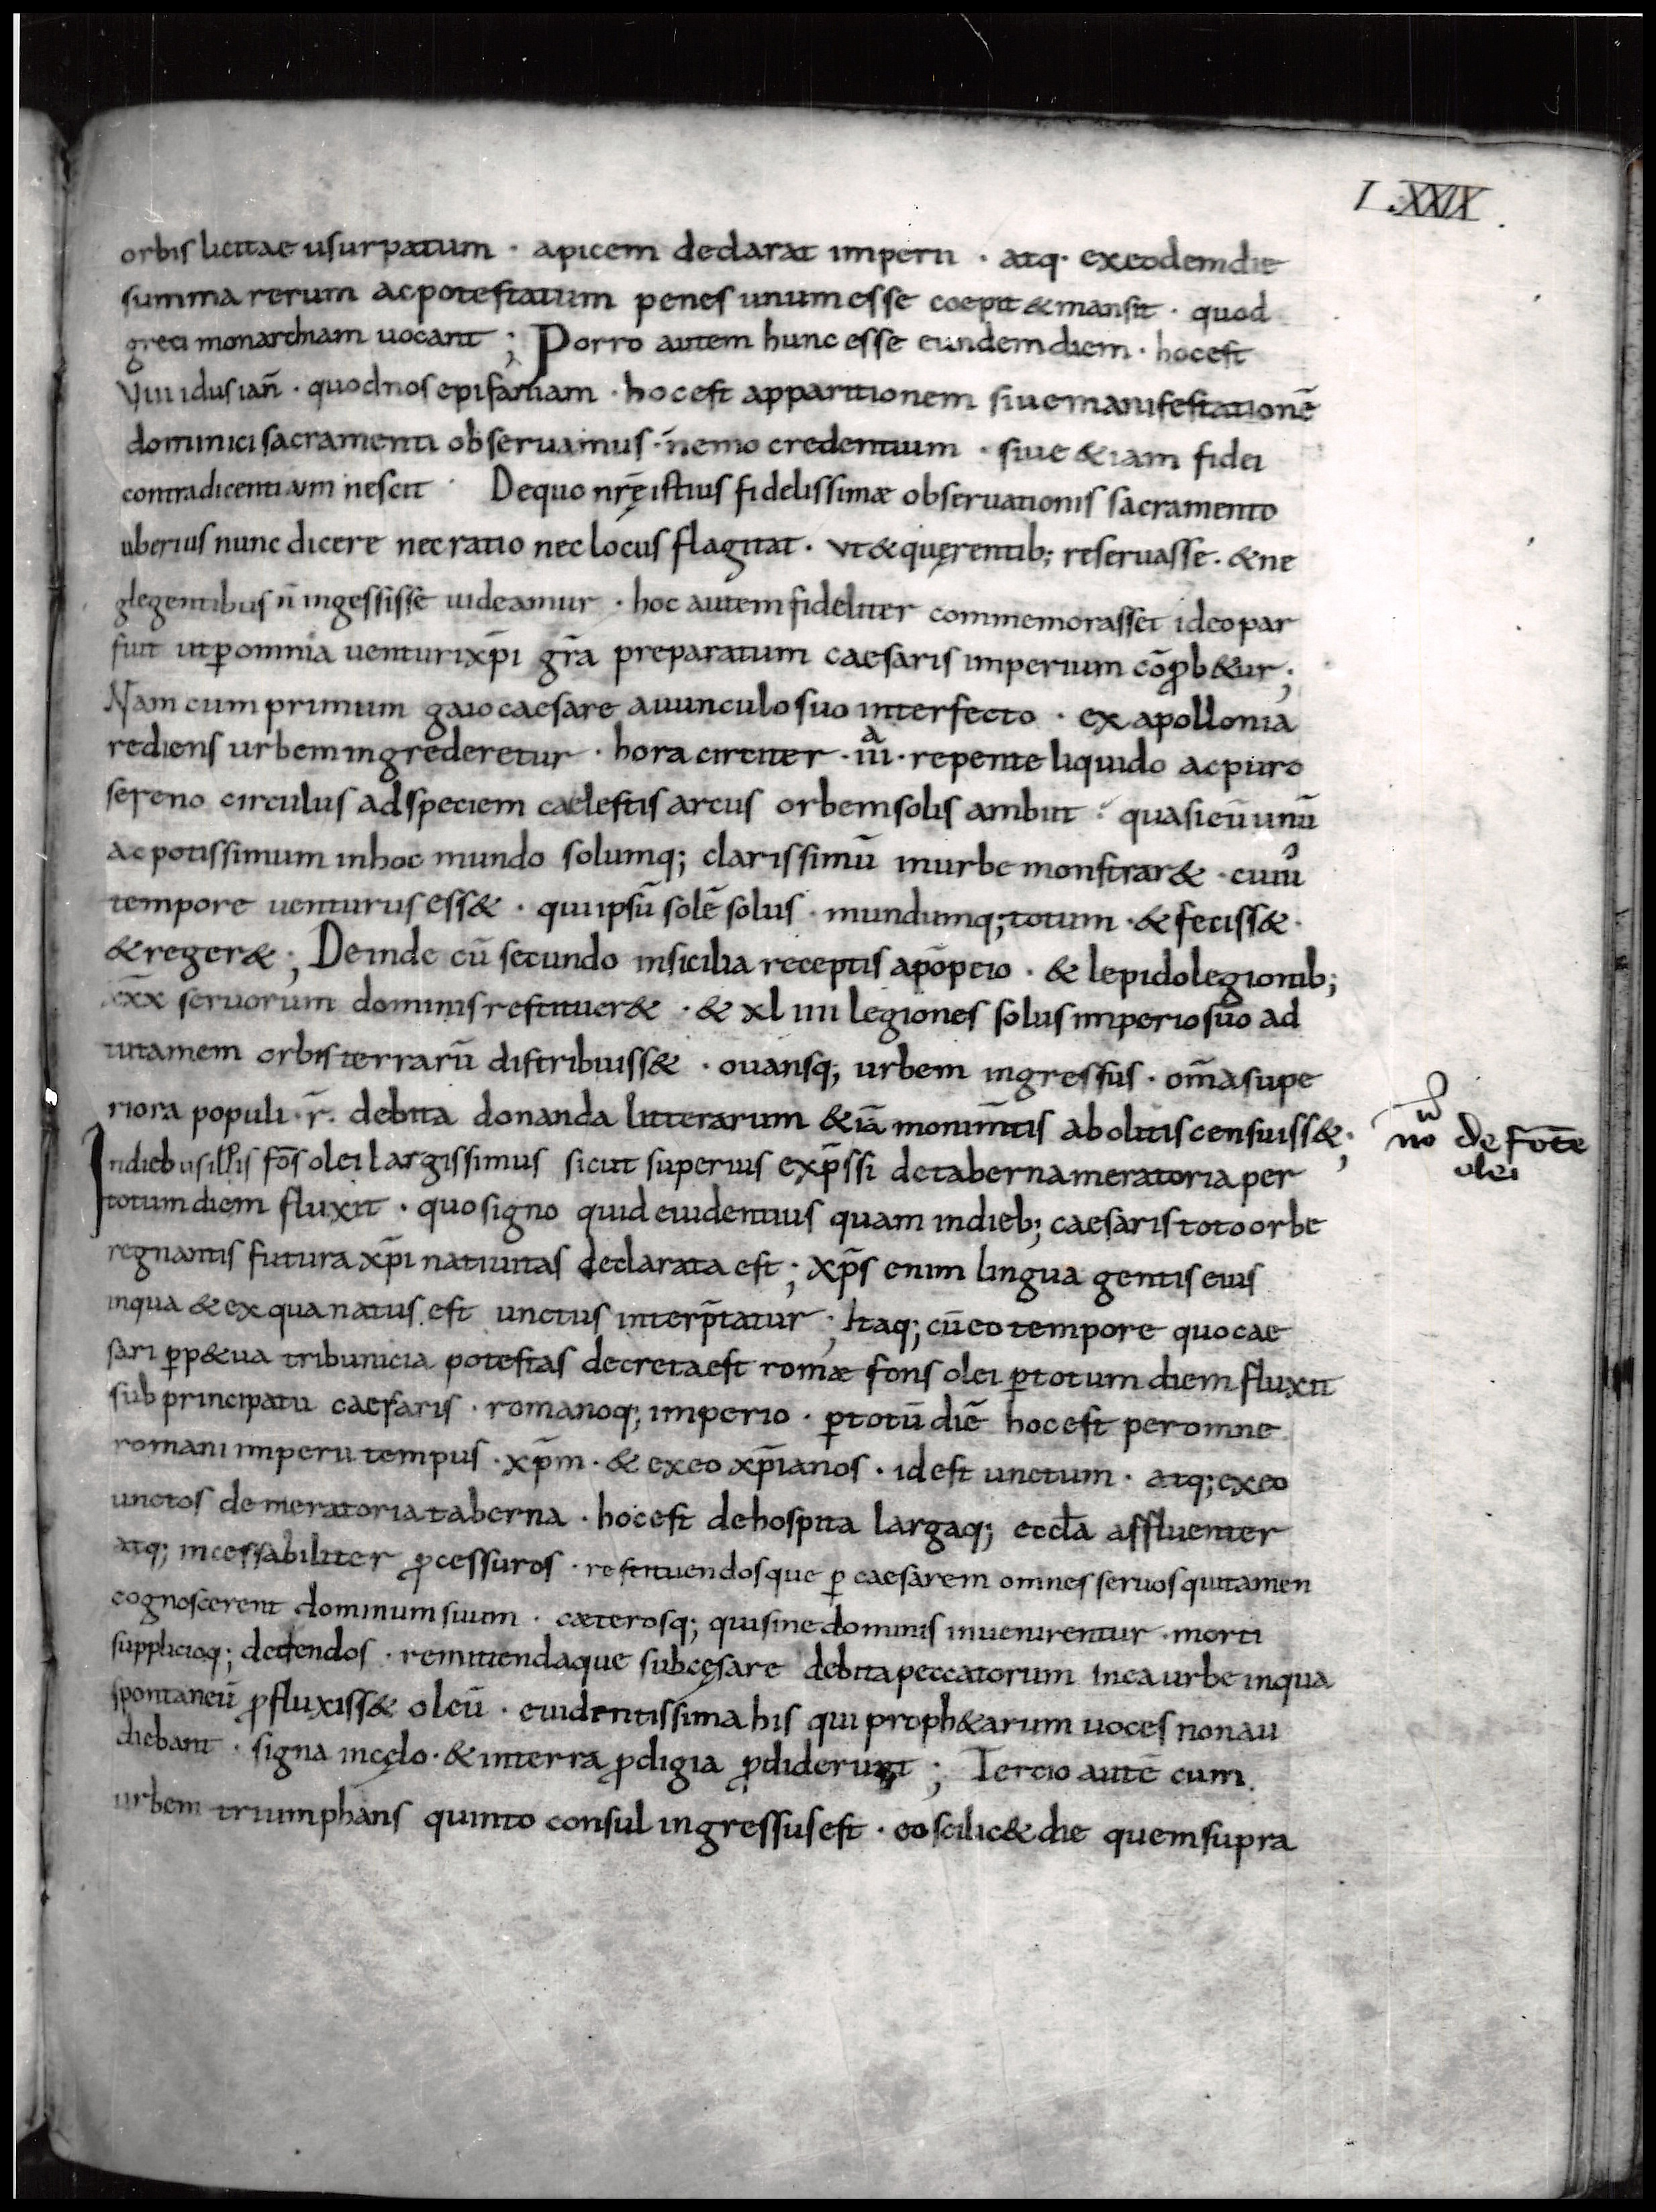 L.XXIX
orbis licitae usurpatum · apicem declarat imperii · atq· exeodemdie
summa rerum acpotestatum penes unumesse coepit &mansit · quod
greci monarchiam uocant ; Porro autem hunc esse eundemdiem · hocest
VIII idusiañ · quodnosepifaniam · hocest apparitionem siuemanifestationē
dominicisacramenti obseruamus · ñemo credentium · siue &iam fidei
contradicentium nescit · Dequo nr̄ę istius fidelissimæ obseruationis sacramento
uberius nunc dicere necratio neclocus flagitat · vt&quęrentib; reseruasse · &ne
glegentibus ñ ingessisse uideamur · hoc autem fideliter commemorasset ideopar
fuit utꝑomnia uenturixp̄i gr̄a preparatum caesaris imperium cōꝓb&ur ;
Nam cum primum gaiocaesare auunculosuo interfecto · ex apollonia
rediens urbemingrederetur · hora circiter · iiiᵃ · repente liquido acpuro
sereno circulus adspeciem caelestis arcus orbemsolis ambiit · quasieū unū
acpotissimum inhoc mundo solumq; clarissimū inurbe monstrar& · cuiꝰ
tempore uenturus ess& · quiipsū solē solus · mundumq; totum · & feciss& ·
&reger& ; Deinde cū secundo insicilia receptis apōpeio · & lepidolegionib;
xxx seruorum dominisrestituer& · & xl iiii legiones solus imperiosuo ad
tutamem orbisterrarū distribuiss& · ouansq; urbem ingressus · om̄asupe
riora populi · r̄. debita donanda litterarum &iā monim̄tis abolitiscensuiss& ;
Indiebusillis fōs olei largissimus sicut superius exp̄ssi detabernameratoria per
totumdiem fluxit · quosigno quid euidentius quam indieb; caesaristotoorbe
regnantis futura xp̄i natiuitas declarata est ; xp̄s enim lingua gentiseius
inqua &exquanatus est unctus interp̄tatur ; Itaq; cūeotempore quocae
sari ꝑp&ua tribunicia potestas decretaest romæ fons olei ꝑtotum diem fluxit
sub principatu caesaris · romanoq; imperio · ꝑtotū diē hocest peromne
romani imperii tempus · xp̄m · & exeo xp̄ianos · idest unctum · atq; exeo
unctos demeratoriataberna · hocest dehospita largaq; eccl̄a affluenter
atq; incessabiliter ꝓcessuros · restituendosque ꝑ caesarem omnes seruosquitamen
cognoscerent dominumsuum · cæterosq; quisinedominis inuenirentur · morti
supplicioq; dedendos · remittendaque subcęsare debitapeccatorum Ineaurbe inqua
spontaneū ꝓfluxiss& oleū · euidentissima his qui proph&arum uoces nonau
diebant · signa incęlo · &interra ꝓdigia ꝓdiderunt ; Tertio autē cum
urbem triumphans quinto consul ingressusest · eo scilic& die quemsupra
no de fōte
olei